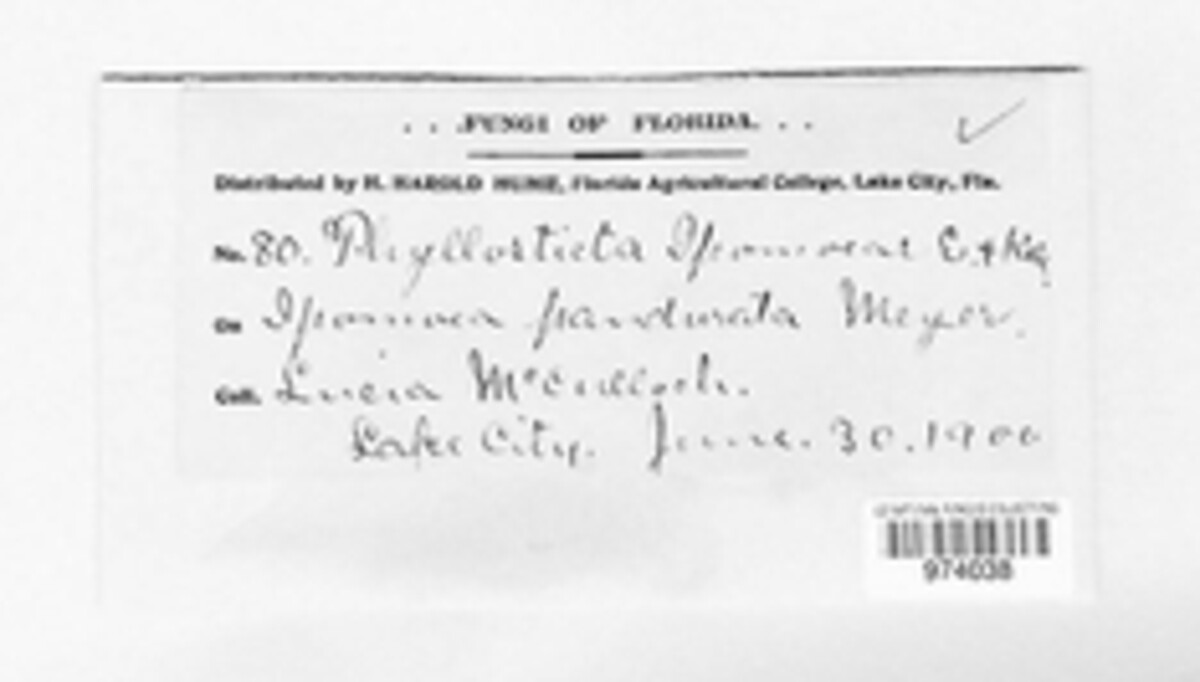 . . .FUNGI OF FLORIDA. . .
Distributed by H. HAROLD HUME, Florida Agricultural College, Lake City, Fla.
No. 80. Phyllosticta Ipomoeae E. & K
On Ipomoea pandurata Meyer.
Coll. Lucia McCulloch.
Lake City. June. 30. 1900
974038